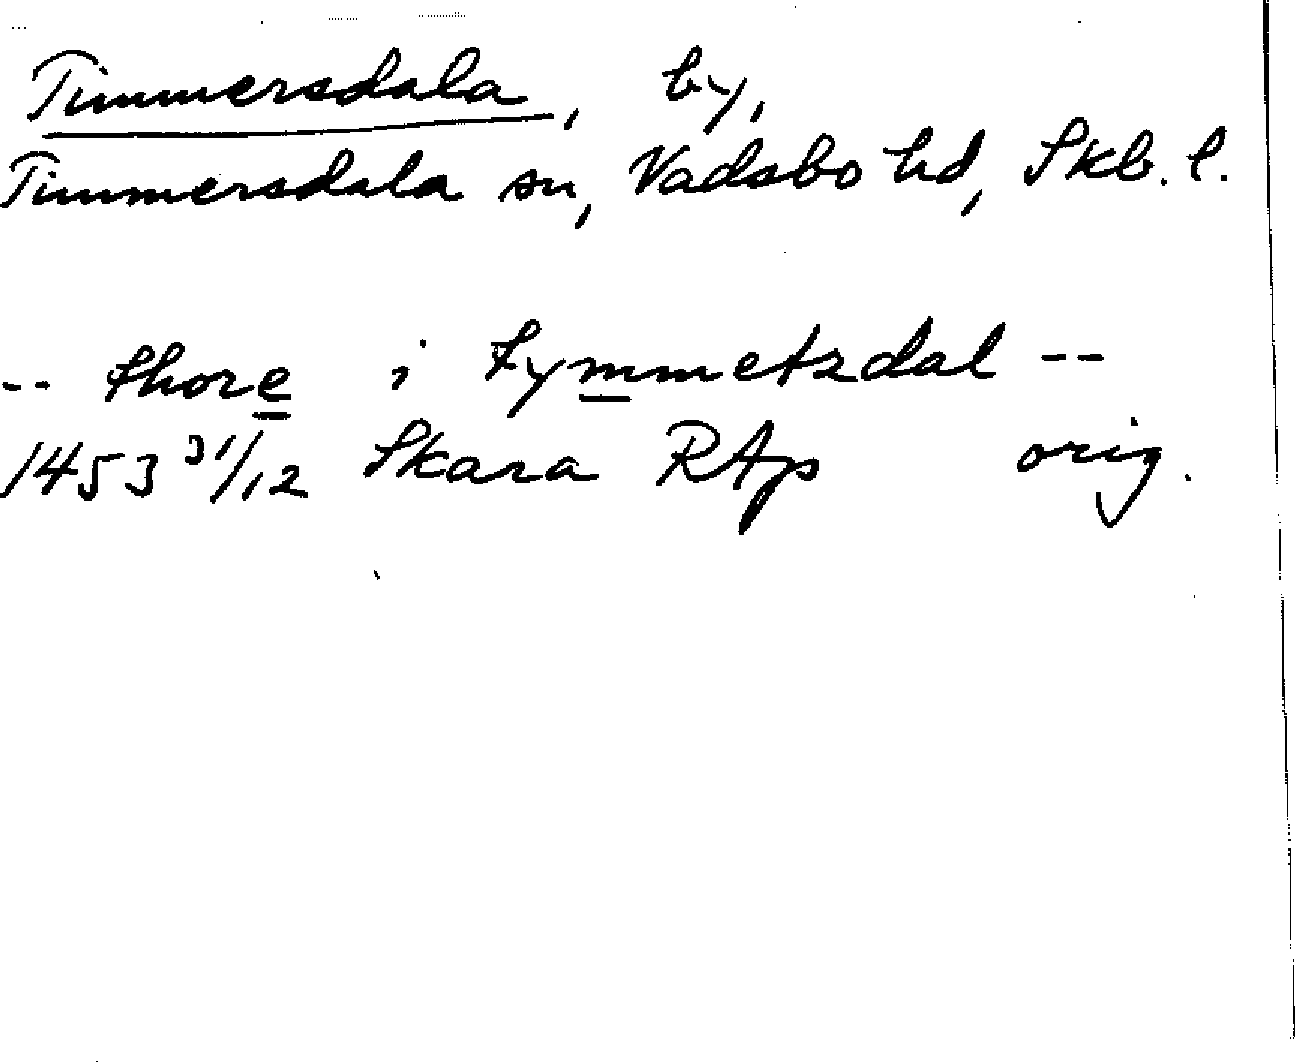 Timmersdala, by,
Timmersdala sn, Vadsbo hd, Skb. l.
-- thore i tymmetzdal --
1453 31/12 Skara RAp orig.